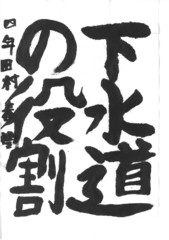 下水道
の役割
四年田村